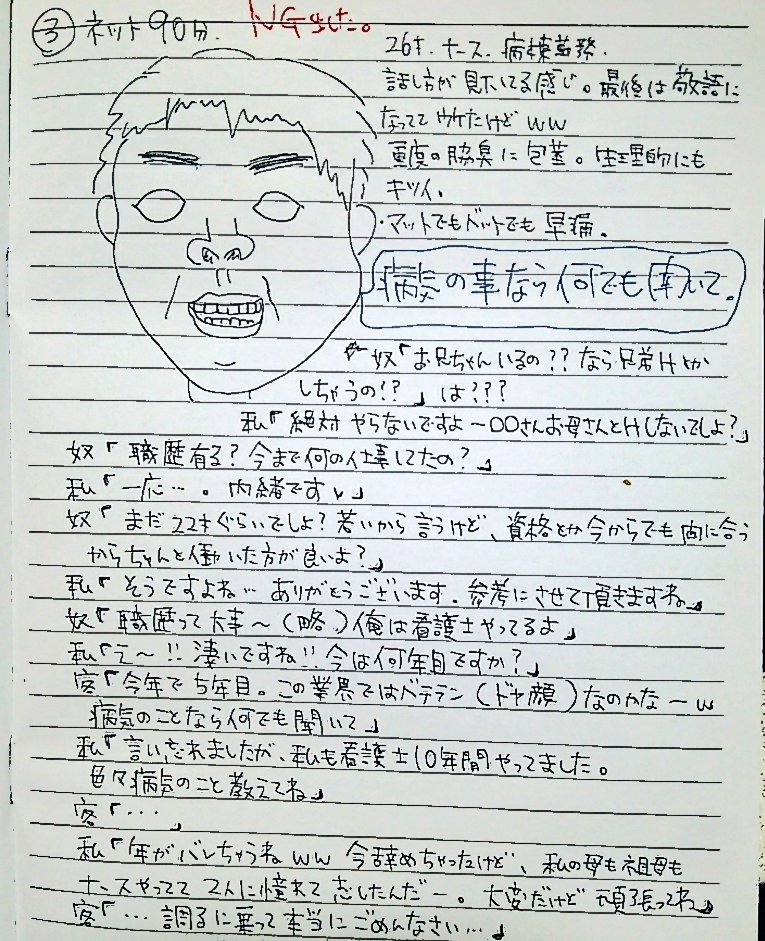 ③ ネット90分. NGました。
26才. ナース. 病棟勤務.
話し方が見下してる感じ。最後は敬語に
なっててウケたけどww
重度の脇臭に包茎。生理的にも
キツイ.
・マットでもベットでも早漏。
病気の事なら何でも聞いて。
奴「お兄ちゃんいるの??なら兄弟Hとか
しちゃうの!?」は???
私「絶対やらないですよー〇〇さんお母さんとHしないでしょ?」
奴「職歴有る?今まで何の仕事してたの?」
私「一応…。内緒です♥」
奴「まだ22才ぐらいでしょ?若いから言うけど、資格とか今からでも間に合う
からちゃんと働いた方が良いよ?」
私「そうですよね…ありがとうございます.参考にさせて頂きますね」
奴「職歴って大事~(略)俺は看護士やってるよ」
私「え~!!凄いですね!!今は何年目ですか?」
客「今年で5年目。この業界ではベテラン(ドヤ顔)なのかな~w
病気のことなら何でも聞いて」
私「言い忘れましたが、私も看護士10年間やってました。
色々病気のこと教えてね」
客「…」
私「年がバレちゃうねww 今辞めちゃったけど、私の母も祖母も
ナースやってて2人に憧れて志したんだー。大変だけど頑張ってね」
客「…調子に乗って本当にごめんなさい…」